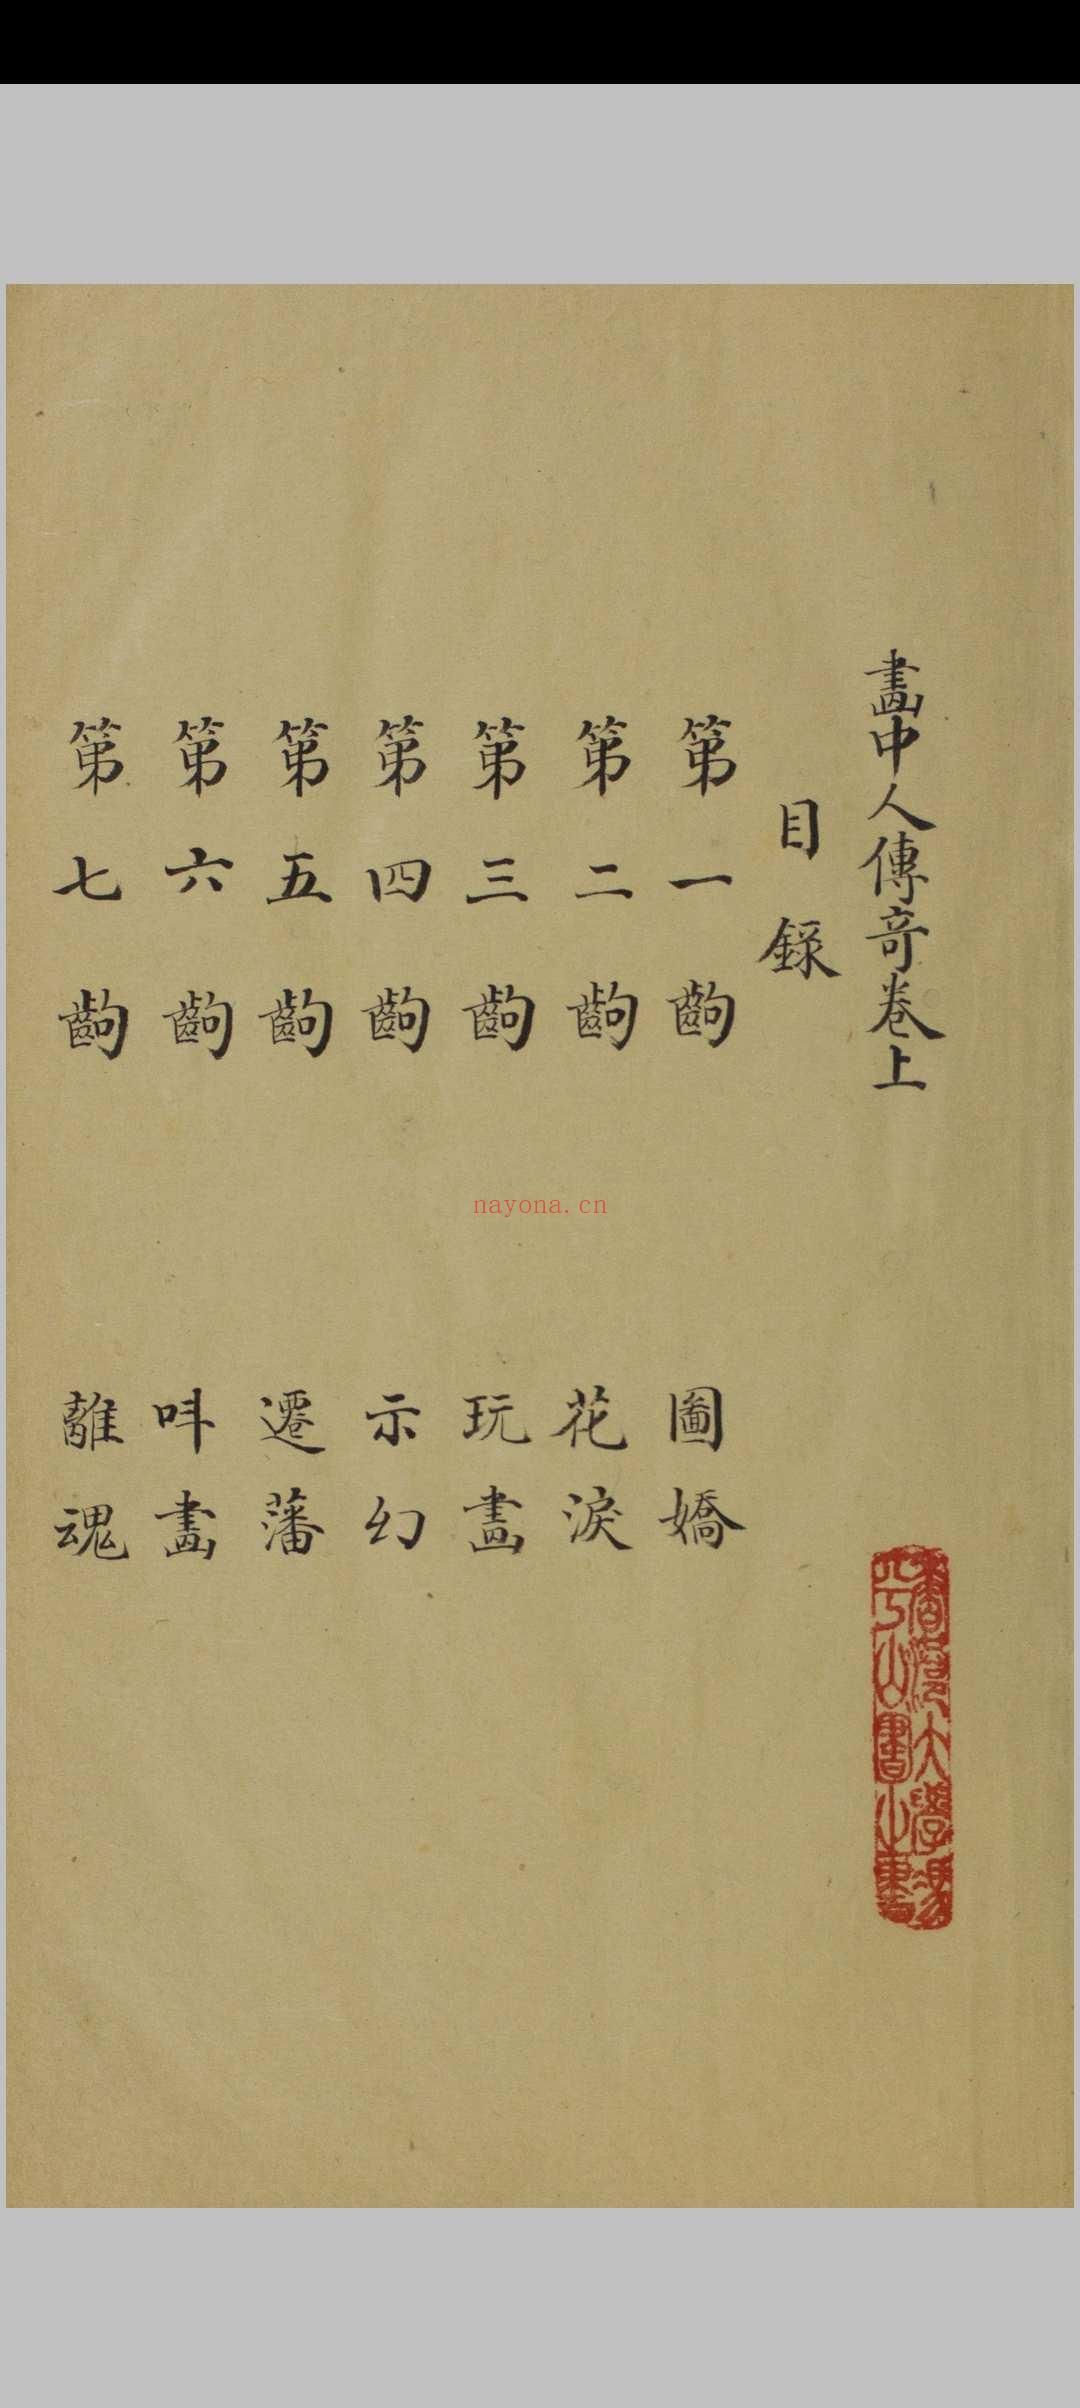 畫中人傳奇卷上
目錄
第一齣 圖嬌
第二齣 花淚
第三齣 玩畫
第四齣 示幻
第五齣 遷藩
第六齣 呌畫
第七齣 離魂
nayona.cn